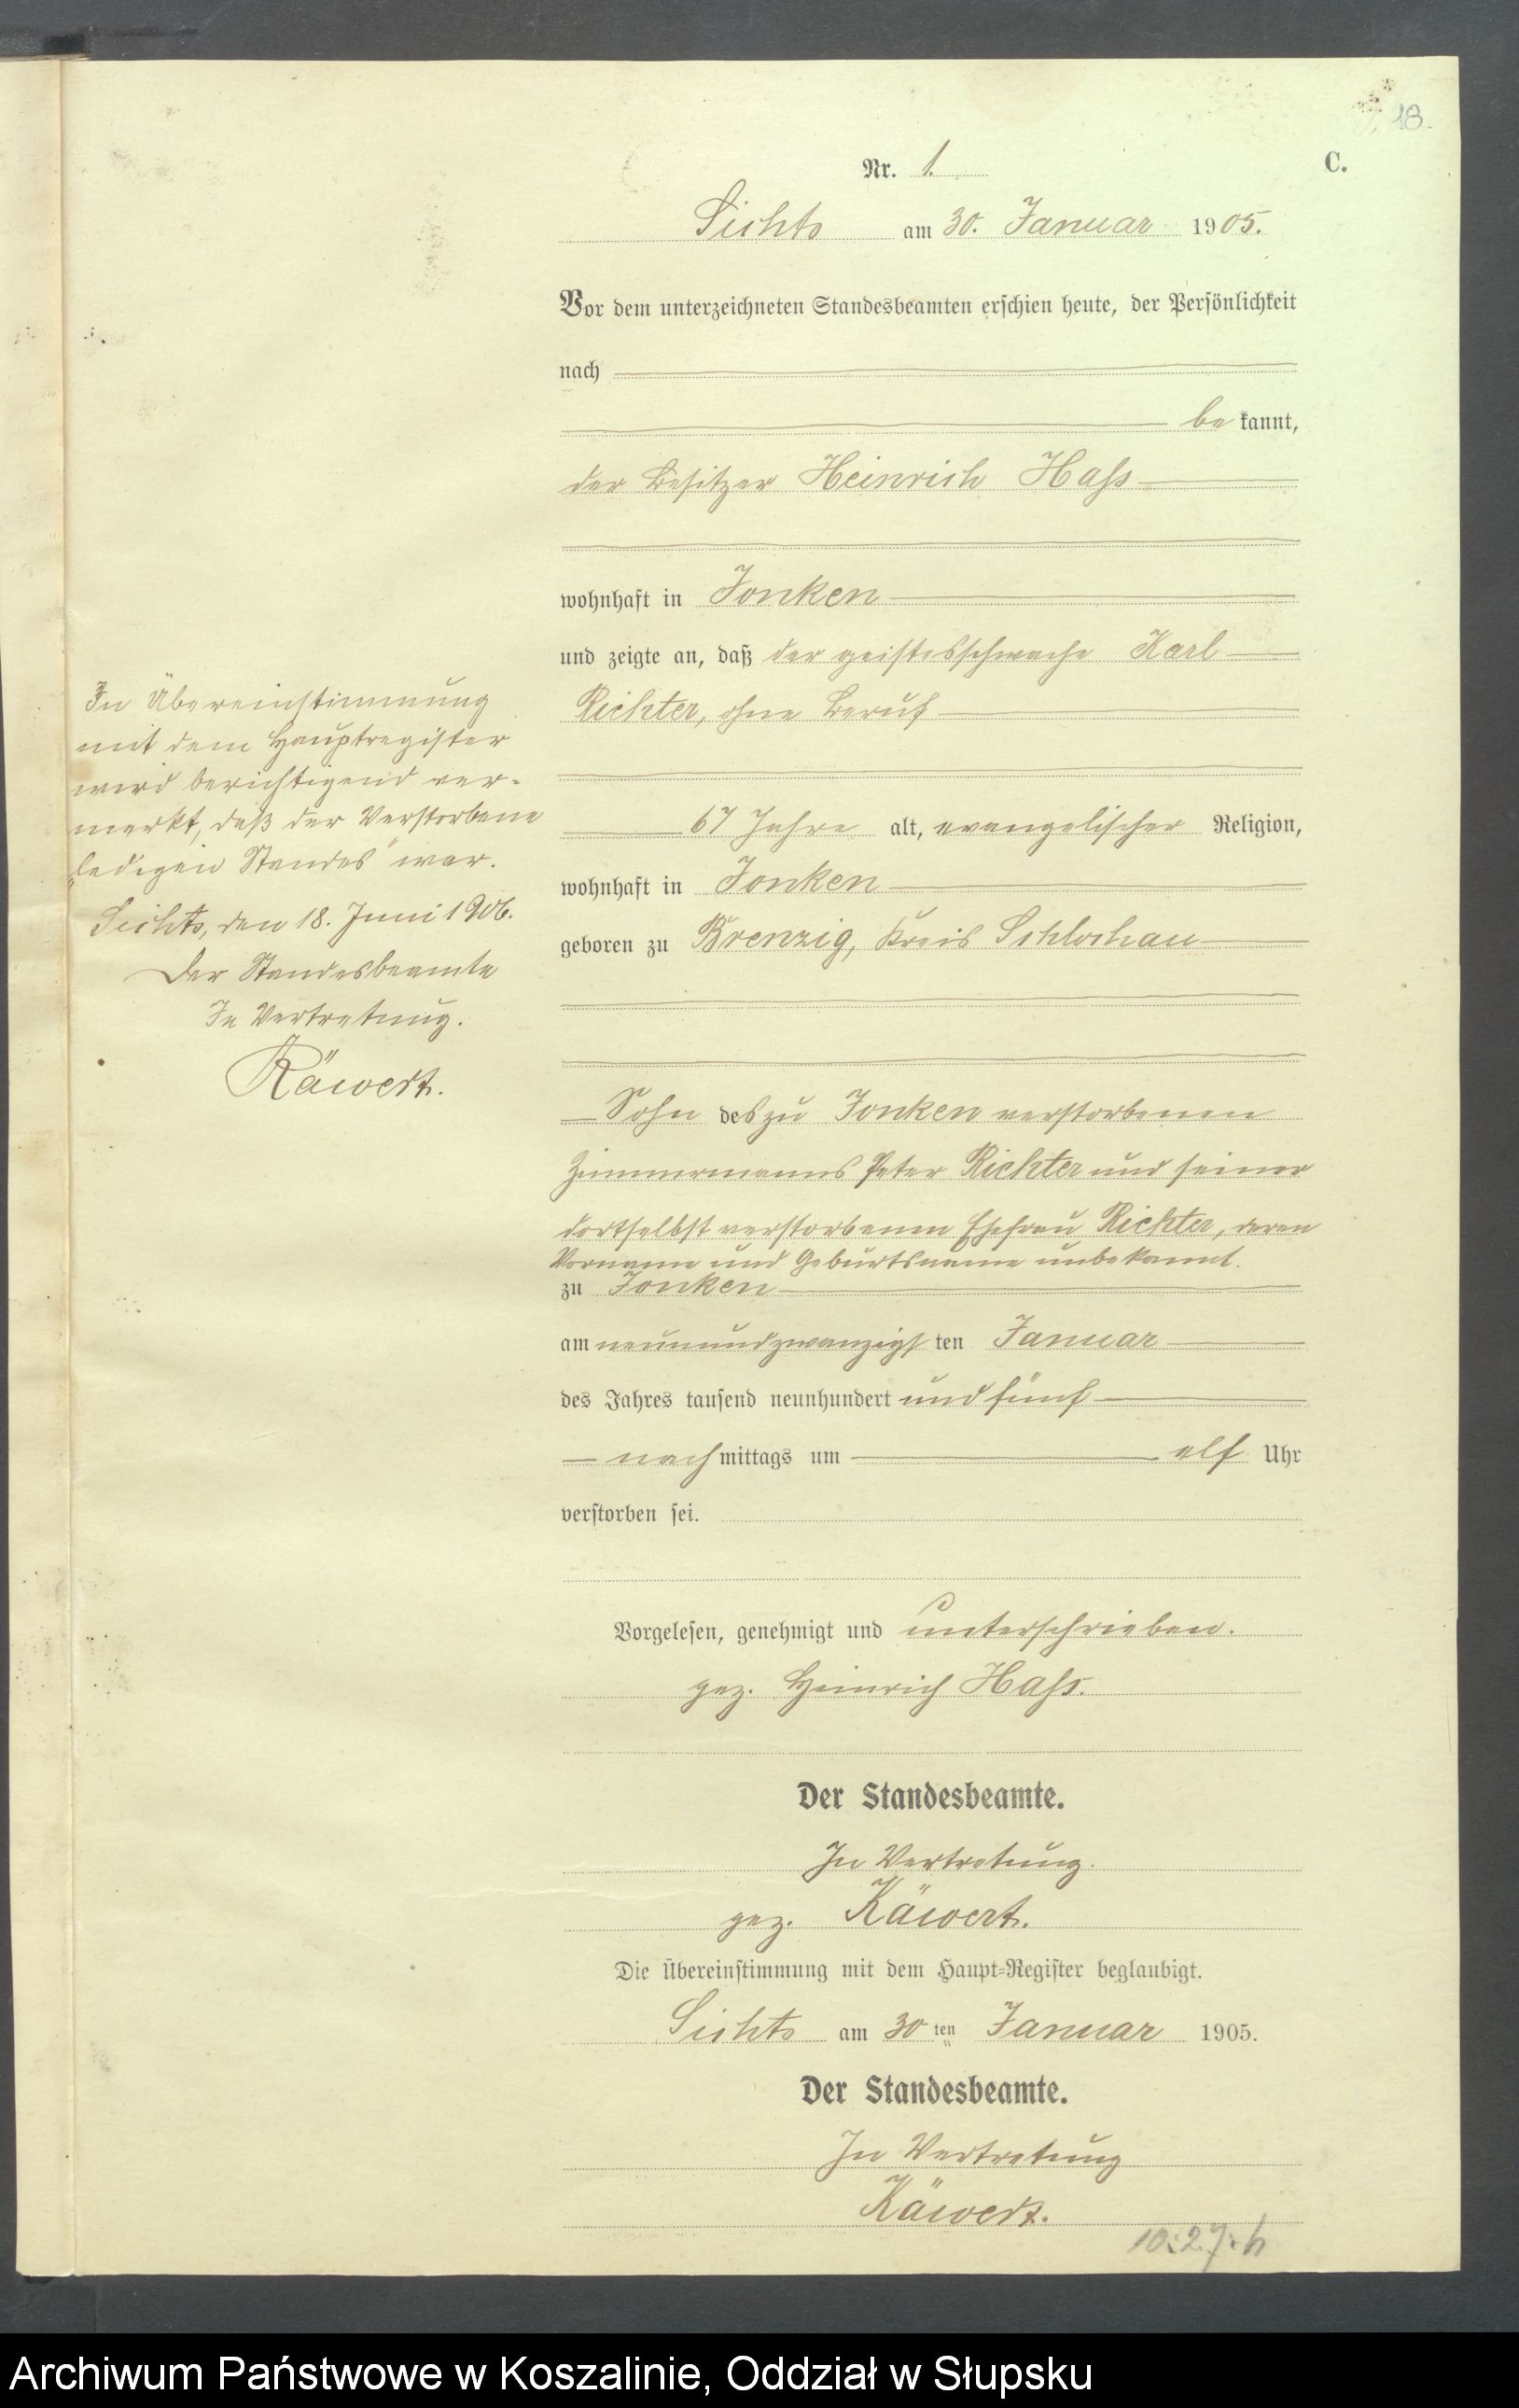 18.
C.
Nr. 1.
Sichts am 30. Januar 1905.
Vor dem unterzeichneten Standesbeamten erschien heute, der Persönlichkeit
nach
be kannt,
der Besitzer Heinrich Hass
wohnhaft in Jonken
und zeigte an, daß der geistesschwache Karl
Richter, ohne Beruf
67 Jahre alt, evangelischer Religion,
wohnhaft in Jonken
geboren zu Brenzig, Kreis Schlochau
Sohn des zu Jonken verstorbenen
Zimmermanns Peter Richter und seiner
dortselbst verstorbenen Ehefrau Richter, deren
Vorname und Geburtsname unbekannt.
zu Jonken
am neunundzwanzigsten Januar
des Jahres tausend neunhundert und fünf
nachmittags um elf Uhr
verstorben sei.
Vorgelesen, genehmigt und unterschrieben.
gez. Heinrich Hass.
Der Standesbeamte.
In Vertretung.
gez. Käwert.
Die Übereinstimmung mit dem Haupt-Register beglaubigt.
Sichts am 30ten Januar 1905.
Der Standesbeamte.
In Vertretung
Käwert.
In Übereinstimmung
mit dem Hauptregister
wird berichtigend ver-
merkt, daß der Verstorbene
„ledigen Standes" war.
Sichts, den 18. Juni 1906.
Der Standesbeamte
In Vertretung.
Käwert.
Archiwum Państwowe w Koszalinie, Oddział w Słupsku